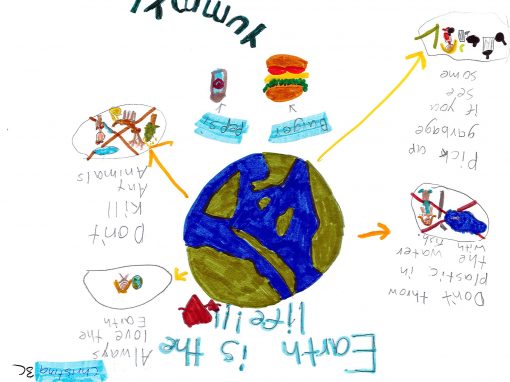 3C
Earth is the
life!!!
Always
love the
Earth
Don't throw
plastic in
the water
with fish.
Don't
Kill
Any
Animals
Pick up
garbage
If you
see
some
pepsi
YUMMY!